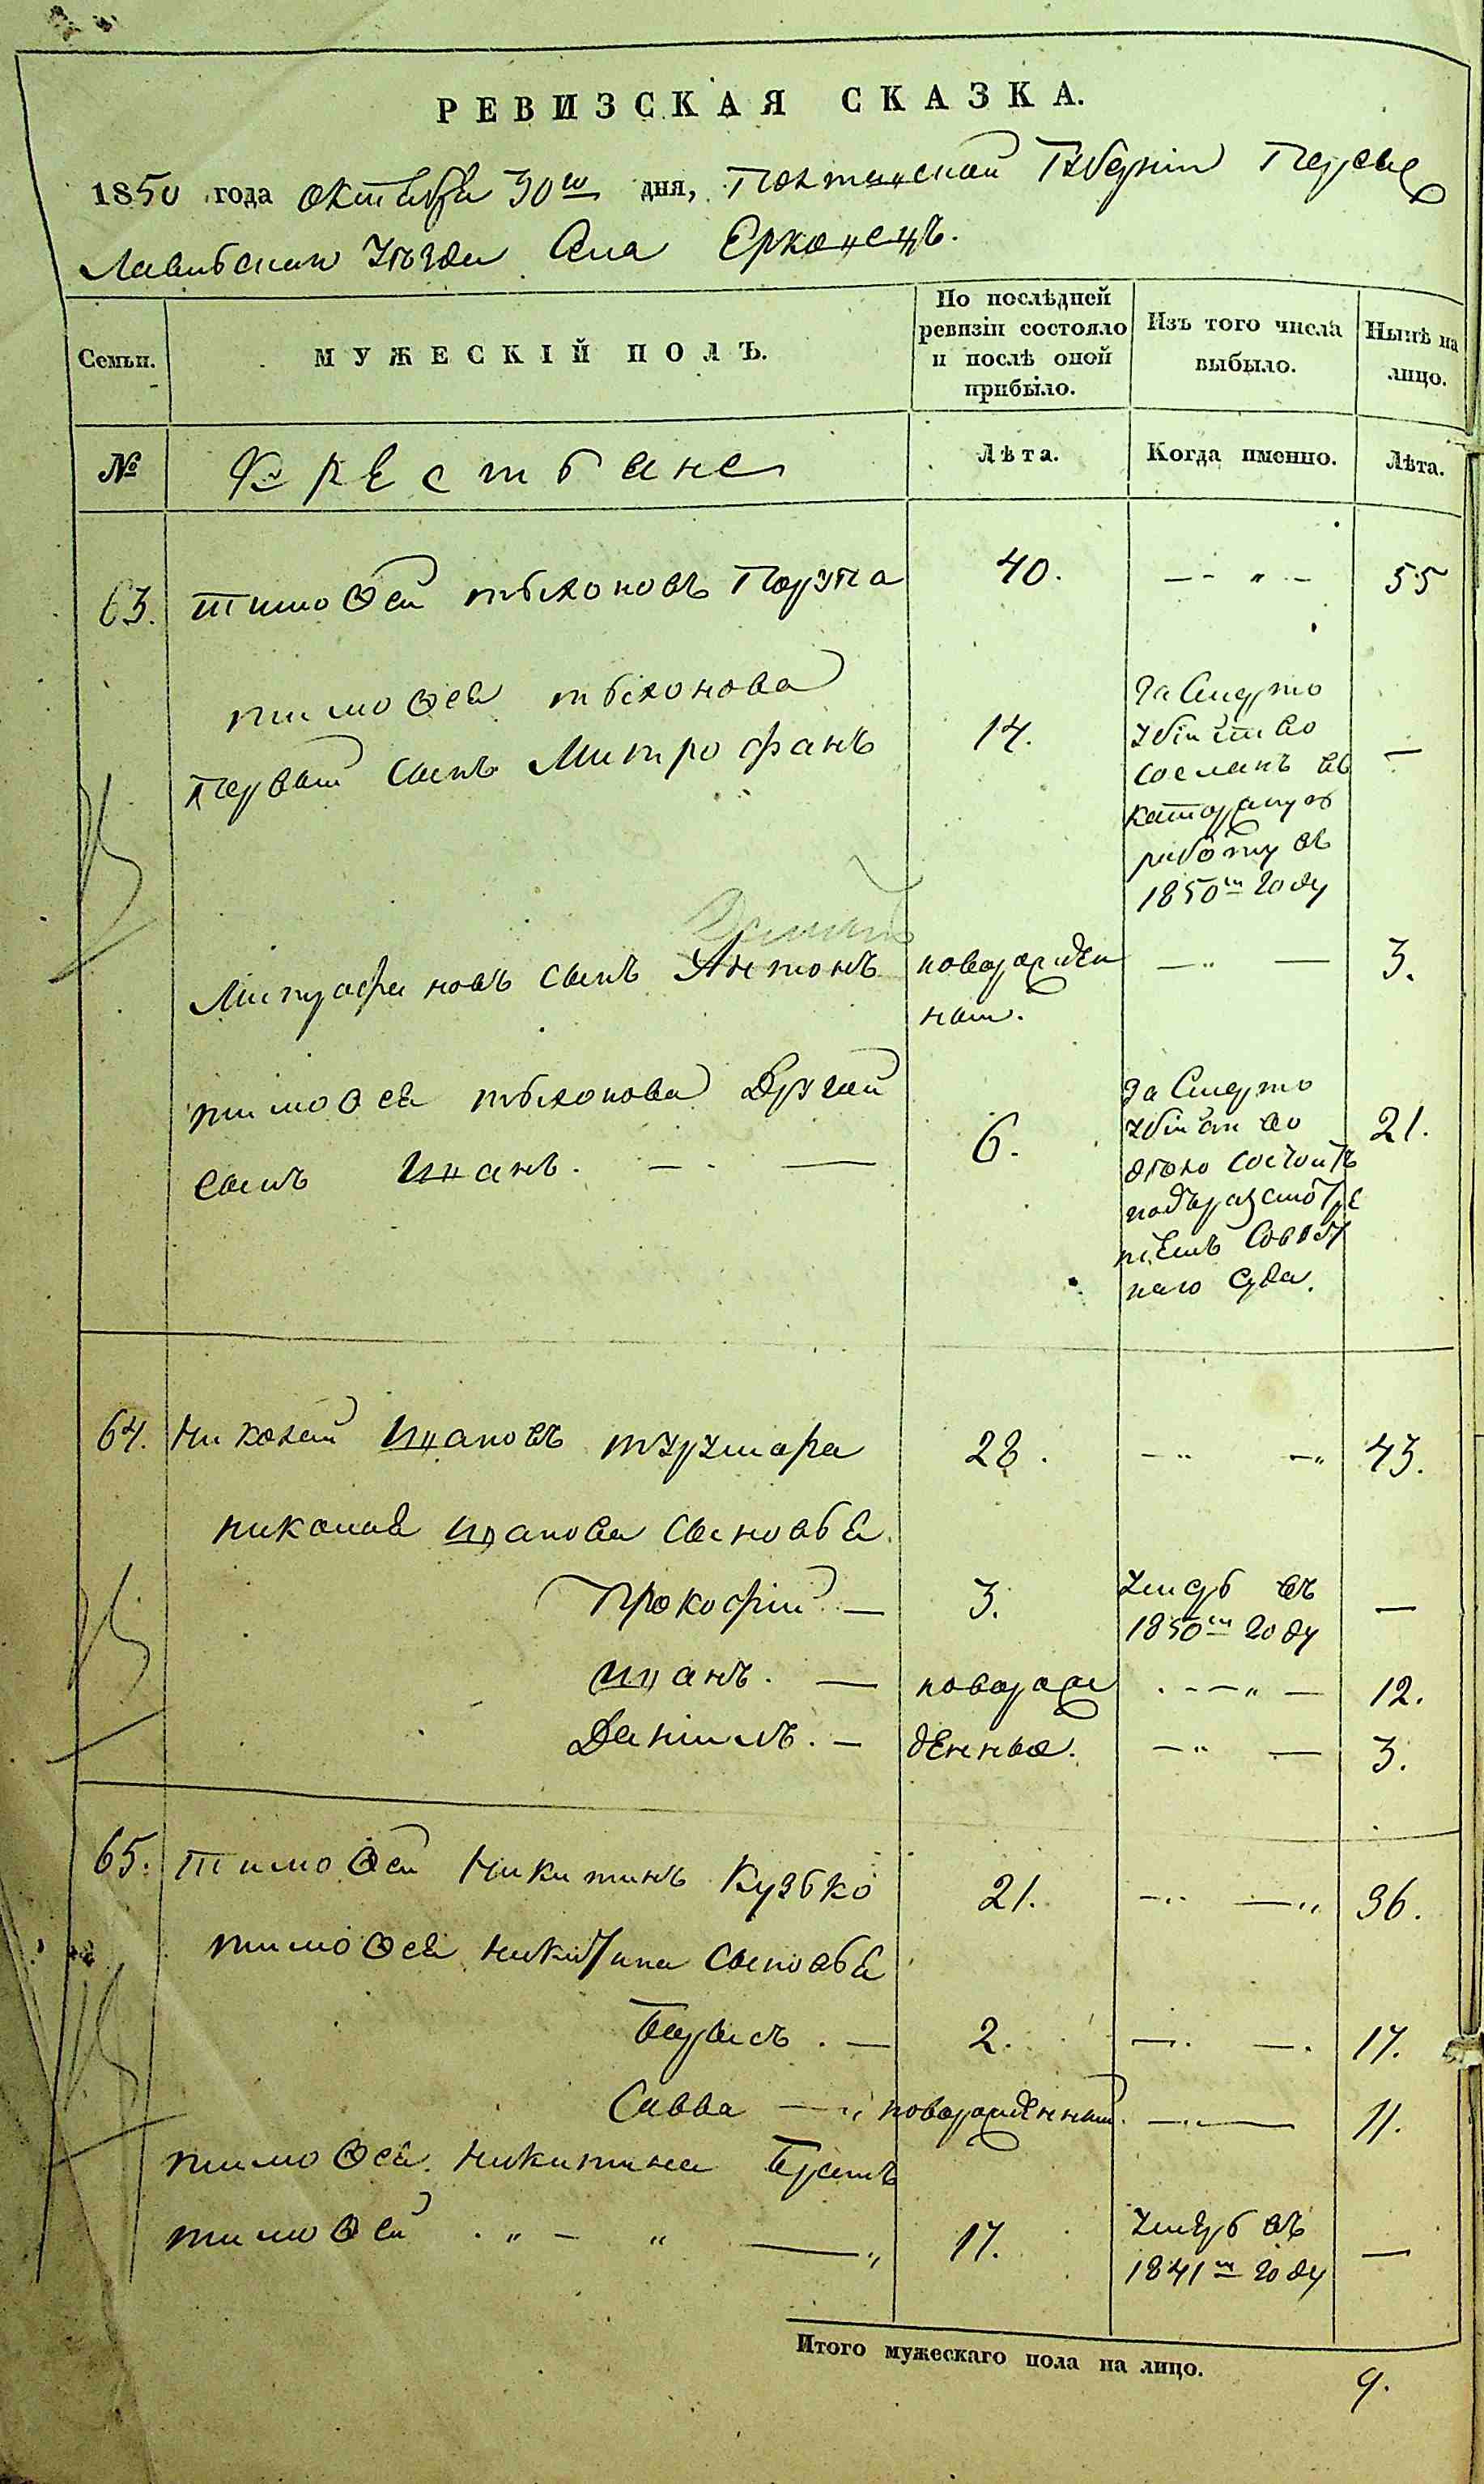 РЕВИЗСКАЯ СКАЗКА.
1850 года октября 30го дня, Полтавской Губерніи Переяс
лавскаго Уѣзда Села Ерковецъ.
Семьи.
МУЖЕСКІЙ ПОЛЪ.
По послѣдней ревизіи состояло и послѣ оной прибыло.
Изъ того числа выбыло.
Нынѣ на лицо.
№
Крестьяне
Лѣта.
Когда именно.
Лѣта.
63. Тимоѳей тихоновъ 40. 55
тимоѳея тихонова
первый сынъ Митрофанъ 14. —
За смерто
убійство
сосланъ въ
каторжную
работу въ
1850м году
Митрофановъ сынъ Антонъ новорожден
ный. 3.
тимоѳея тихонова Другий
сынъ Иванъ. 6. 21.
За Смерто
убійство
состоитъ
подъ разсмотре
ніемъ Совѣст
наго Суда.
64. Николай Ивановъ 28. 43.
николая иванова сыновья
Прокофій — 3. умеръ въ
1850м году —
иванъ. — новорож 12.
Даніилъ. — денные. 3.
65. Тимоѳей Никитинъ Кузько 21. 36.
тимоѳея никитина сыновья
Борисъ. — 2. 17.
Савва — новорожденный. 11.
тимоѳея никитина братъ
тимоѳей 17. умеръ въ
1841м году —
Итого мужескаго пола на лицо. 9.